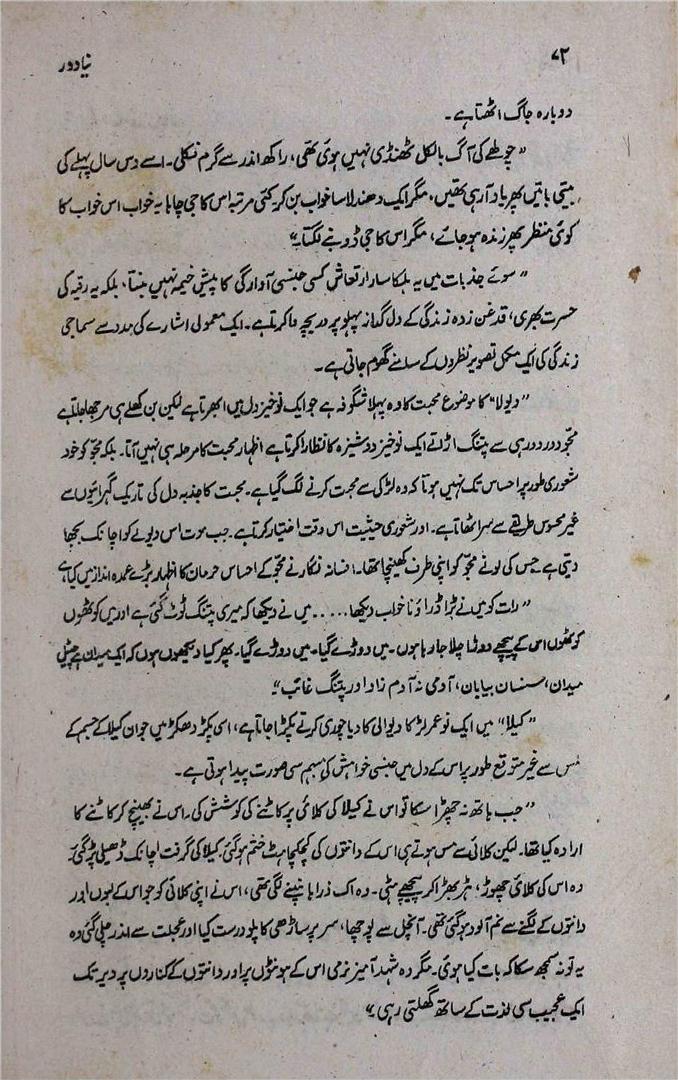 ۷۲
نیا دور
دوبارہ جاگ اٹھتا ہے۔
"چولھے کی آگ بالکل ٹھنڈی نہیں ہوئی تھی، راکھ اندر سے گرم نکلی۔ اسے دس سال پہلے کی
بیتی باتیں پھر یاد آ رہی تھیں، مگر ایک دھندلا سا خواب بن کر۔ کئی مرتبہ اس کا جی چاہا یہ خواب اس خواب کا
کوئی منظر پھر زندہ ہو جائے، مگر اس کا جی ڈوبنے لگتا۔"
"سوئے جذبات میں یہ ہلکا سا ارتعاش کسی جنسی آوارگی کا پیش خیمہ نہیں بنتا، بلکہ یہ رقیہ کی
حسرت بھری، قدغن زدہ زندگی کے دل گداز پہلو پر دریچہ وا کرتا ہے۔ ایک معمولی اشارے کی مدد سے سماجی
زندگی کی ایک مکمل تصویر نظروں کے سامنے گھوم جاتی ہے۔
"دیولا" کا موضوع محبت کا وہ پہلا شگوفہ ہے جو ایک نوخیز دل میں ابھرتا ہے لیکن بن کھلے ہی مرجھا جاتا ہے
مجّو دور دور ہی سے پتنگ اڑاتے ایک نوخیز دوشیزہ کا نظارا کرتا ہے اظہار محبت کا مرحلہ ہی نہیں آتا۔ بلکہ مجّو کو خود
شعوری طور پر احساس تک نہیں ہوتا کہ وہ لڑکی سے محبت کرنے لگ گیا ہے۔ محبت کا جذبہ دل کی تاریک گہرائیوں سے
غیر محسوس طریقے سے سر اٹھاتا ہے۔ اور شعوری حیثیت اس وقت اختیار کرتا ہے۔ جب موت اس دیولے کو اچانک بجھا
دیتی ہے جس کی لو نے مجّو کو اپنی طرف کھینچا تھا۔ افسانہ نگار نے مجّو کے احساس حرمان کا اظہار بڑے عمدہ انداز میں کیا ہے
"رات کو میں نے بڑا ڈراؤنا خواب دیکھا.....میں نے دیکھا کہ میری پتنگ ٹوٹ گئی ہے اور میں کوٹھوں
کوٹھوں اس کے پیچھے دوڑتا چلا جا رہا ہوں۔ میں دوڑے گیا۔ میں دوڑے گیا۔ پھر کیا دیکھوں ہوں کہ ایک میدان ہے چٹیل
میدان، سنسان بیابان، آدمی نہ آدم زاد اور پتنگ غائب"۔
"کیلا" میں ایک نوعمر لڑکا دیوالی کا دیا چوری کرتے پکڑا جاتا ہے، اسی پکڑ دھکڑ میں جوان کیلا کے جسم کے
مس سے غیر متوقع طور پر اس کے دل میں جنسی خواہش کی مبہم سی صورت پیدا ہوتی ہے۔
"جب ہاتھ نہ چھڑا سکا تو اس نے کیلا کی کلائی پر کاٹنے کی کوشش کی۔ اس نے بھینچ کر کاٹنے کا
ارادہ کیا تھا۔ لیکن کلائی سے مس ہوتے ہی اس کے دانتوں کی کچکچاہٹ ختم ہو گئی۔ کیلا کی گرفت اچانک ڈھیلی پڑ گئی۔
وہ اس کی کلائی چھوڑ، ہڑبڑا کر پیچھے ہٹی۔ وہ اک ذرا ہانپنے لگی تھی، اس نے اپنی کلائی کو جو اس کے لبوں اور
دانتوں کے لگنے سے نم آلود ہو گئی تھی۔ آنچل سے پونچھا، سر پر ساڑھی کا پلو درست کیا اور عجلت سے اندر چلی گئی وہ
یہ تو نہ سمجھ سکا کہ بات کیا ہوئی۔ مگر وہ شہد آمیز نرمی اس کے ہونٹوں پر اور دانتوں کے کناروں پر دیر تک
ایک عجیب سی لذت کے ساتھ گھلتی رہی۔"